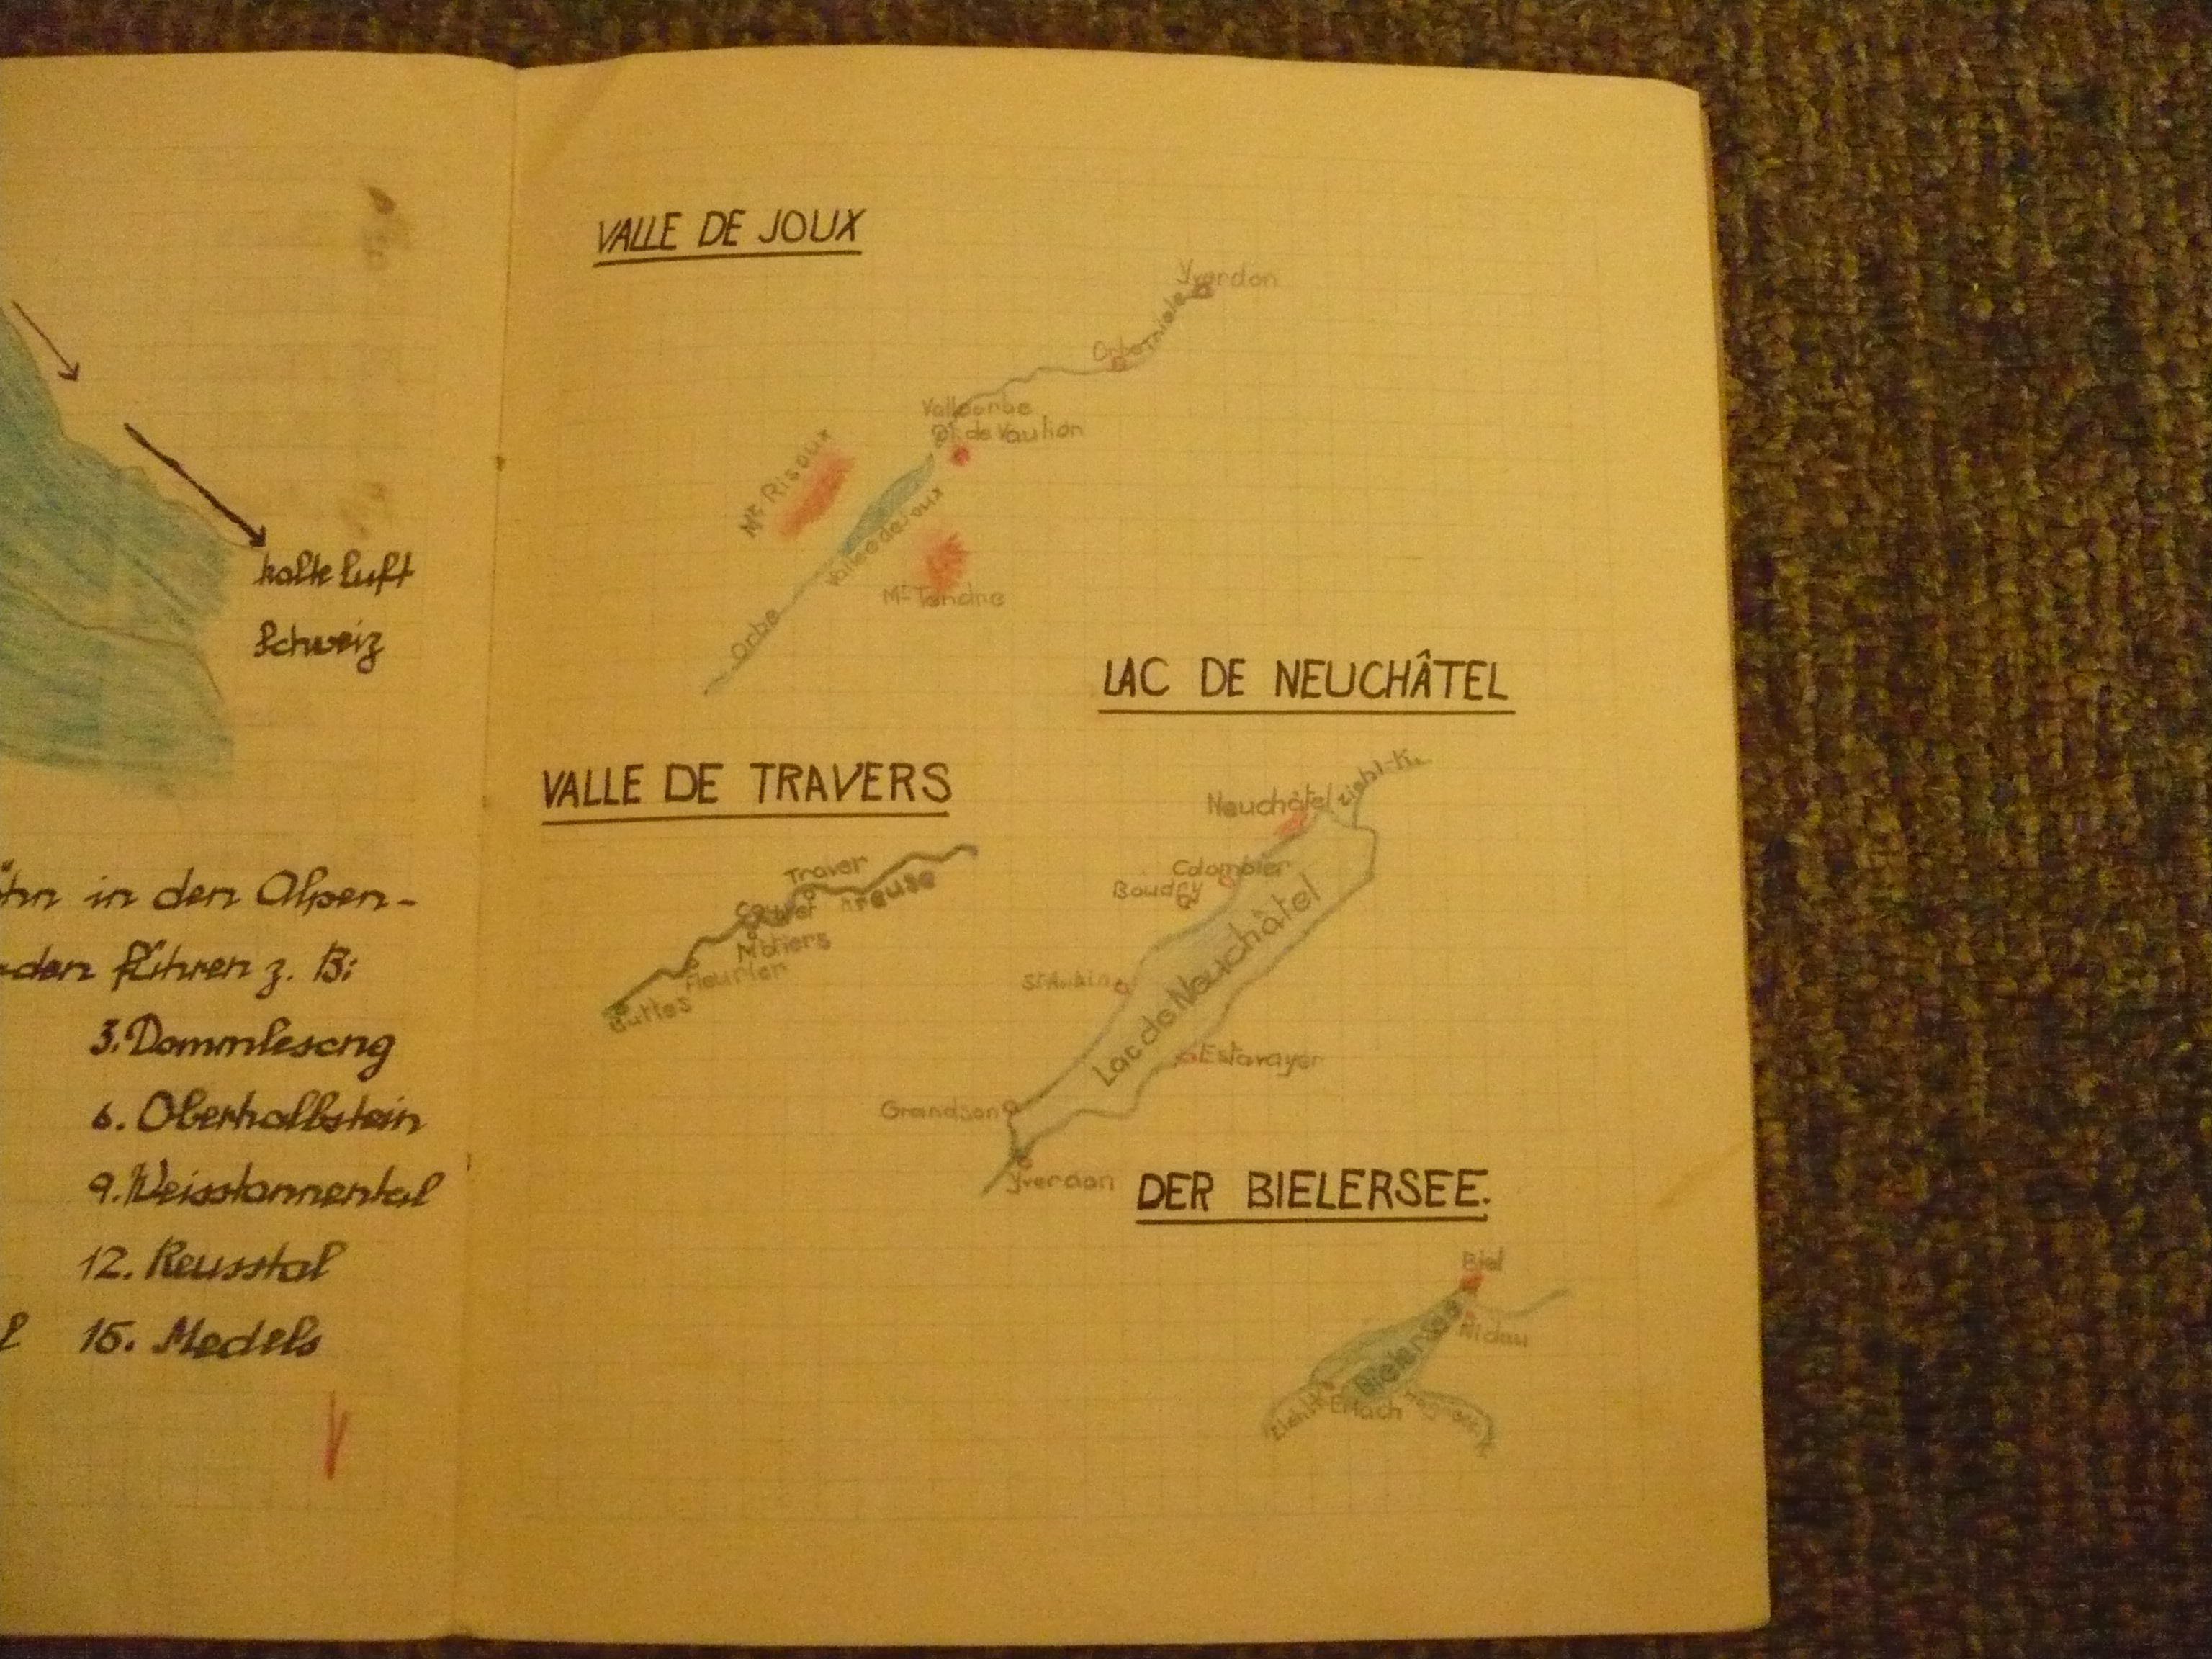 kalte Luft
Schweiz
in den Alpen-
den führen z. B:
3. Dommlesong
6. Oberhalbstein
9. Weisstannental
12. Reusstal
15. Medels
VALLE DE JOUX
Yverdon
Orbe Thiele
Vallorbe
Dt. de Vaulion
Mt Risoux
Vallee de Joux
Mt Tendre
Orbe
LAC DE NEUCHÂTEL
VALLE DE TRAVERS
Ziehl-K.
Neuchâtel
Colombier
Boudry
Lac de Neuchâtel
St Aubin
Estavayer
Grandson
Yverdon
Traver
Couvet Areuse
Môtiers
Fleurier
Buttes
DER BIELERSEE.
Biel
Nidau
Bielersee
Erlach